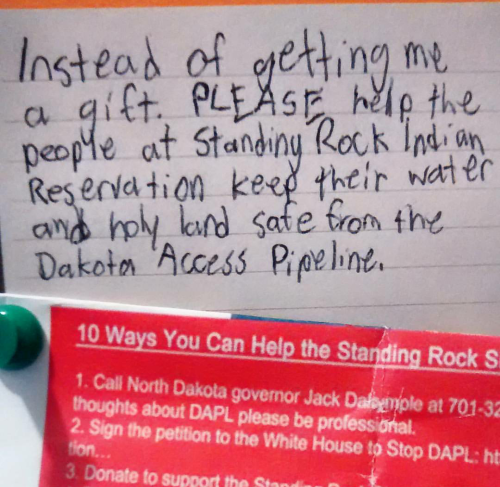 Instead of getting me
a gift. PLEASE help the
people at Standing Rock Indian
Reservation keep their water
and holy land safe from the
Dakota Access Pipeline.
10 Ways You Can Help the Standing Rock S
1. Call North Dakota governor Jack Dalrymple at 701-32
thoughts about DAPL please be professional.
2. Sign the petition to the White House to Stop DAPL: ht
tion...
3. Donate to support the Standing